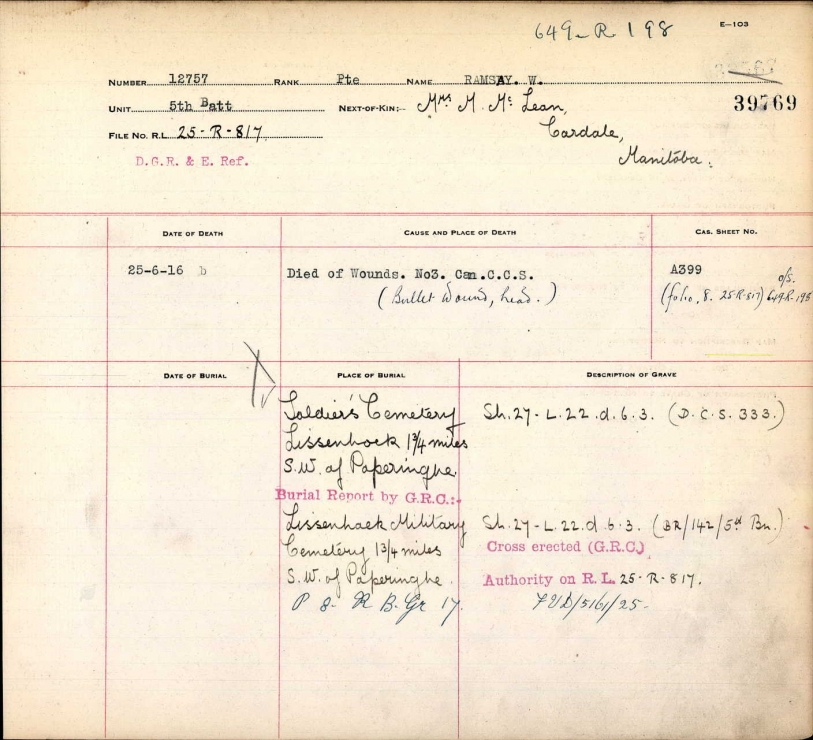 649-R-198
E—103
NUMBER 12757 RANK Pte NAME RAMSAY. W.
UNIT 5th Batt NEXT-OF-KIN:- Mrs M. Mc Lean, 39769
Cardale,
FILE No. R.L. 25-R-817
Manitoba.
D.G.R. & E. Ref.
DATE OF DEATH CAUSE AND PLACE OF DEATH CAS. SHEET NO.
25-6-16 b Died of Wounds. No3. Can.C.C.S. A399
(Bullet Wound, head.) (folio, 8. 25-R-817) 649-R-198 o/s.
DATE OF BURIAL PLACE OF BURIAL DESCRIPTION OF GRAVE
Soldier's Cemetery Sh.27-L.22.d.6.3. (D.C.S. 333.)
Lissenhoek 1¾ miles
S.W. of Paperinghe.
Burial Report by G.R.C.:-
Lissenhoek Military Sh.27-L.22.d.6.3. (BR/142/5th Bn.)
Cemetery 1¾ miles Cross erected (G.R.C.)
S.W. of Paperinghe. Authority on R.L. 25-R-817.
P 8- R B. Gr 17.